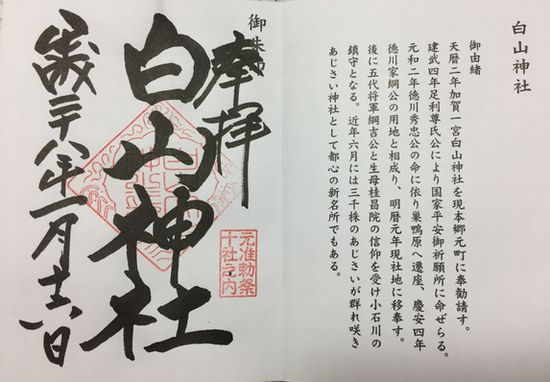 白山神社
御由緒
天暦二年加賀一宮白山神社を現本郷元町に奉勧請す。
建武四年足利尊氏公により国家平安御祈願所に命ぜらる。
元和二年徳川秀忠公の命に依り巣鴨原へ遷座、慶安四年
徳川家綱公の用地と相成り、明暦元年現社地に移奉す。
後に五代将軍綱吉公と生母桂昌院の信仰を受け小石川の
鎮守となる。近年六月には三千株のあじさいが群れ咲き
あじさい神社として都心の新名所でもある。
御朱印
奉拝
白山神社
元准勅祭
十社之内
平成二十八年一月十六日